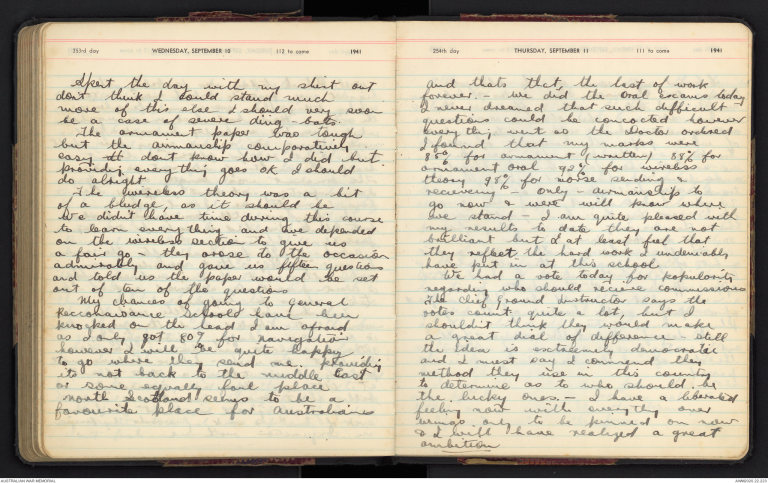 253rd day WEDNESDAY, SEPTEMBER 10 112 to come 1941
Spent the day with my shirt out
don't think I could stand much
more of this else I should very soon
be a case of severe ding-bats.
The armament paper was tough
but the airmanship comparatively
easy. I don't know how I did but
providing every thing goes OK I should
do alright.
The wireless theory was a bit
of a bludge, as it should be
We didn't have time during this course
to learn everything and we depended
on the wireless section to give us
a fair go - they arose to the occasion
admirably and gave us fifteen questions
and told us the paper would be set
out of ten of the questions
My chances of going to General
Reconnaisance Schools have been
knocked on the head I am afraid
as I only got 80% for navigation
however I will be quite happy
to go where they send me. providing
its not back to the middle East
or some equally foul place
North Scotland seems to be a
favourite place for Australians
254th day THURSDAY, SEPTEMBER 11 111 to come 1941
And thats that, the last of work
forever. - we did the Oral exams today
I never dreamed that such difficult
questions could be concocted however
every thing went as the Doctor ordered
I found that my marks were
85% for armament (written) 88% for
armament oral 92% for wireless
theory 98% for morse sending &
receiving - Only - airmanship to
go now & were will know where
we stand - I am quite pleased with
my results to date they are not
brilliant but I at least feel that
they reflect the hard work I undeniably
have put in at this school
We had a vote today for popularity
regarding who should recieve commissions
The Chief Ground Instructor says the
votes count quite a lot, but I
shouldn't think they would make
a great deal of difference - still
the idea is extremely democratic
and I must say I commend the
method they use in this country
to determine as to who should be
the lucky ones. - I have a liberated
feeling now with everything over
wings only to be pinned on now
& I will have realized a great
ambition
AUSTRALIAN WAR MEMORIAL